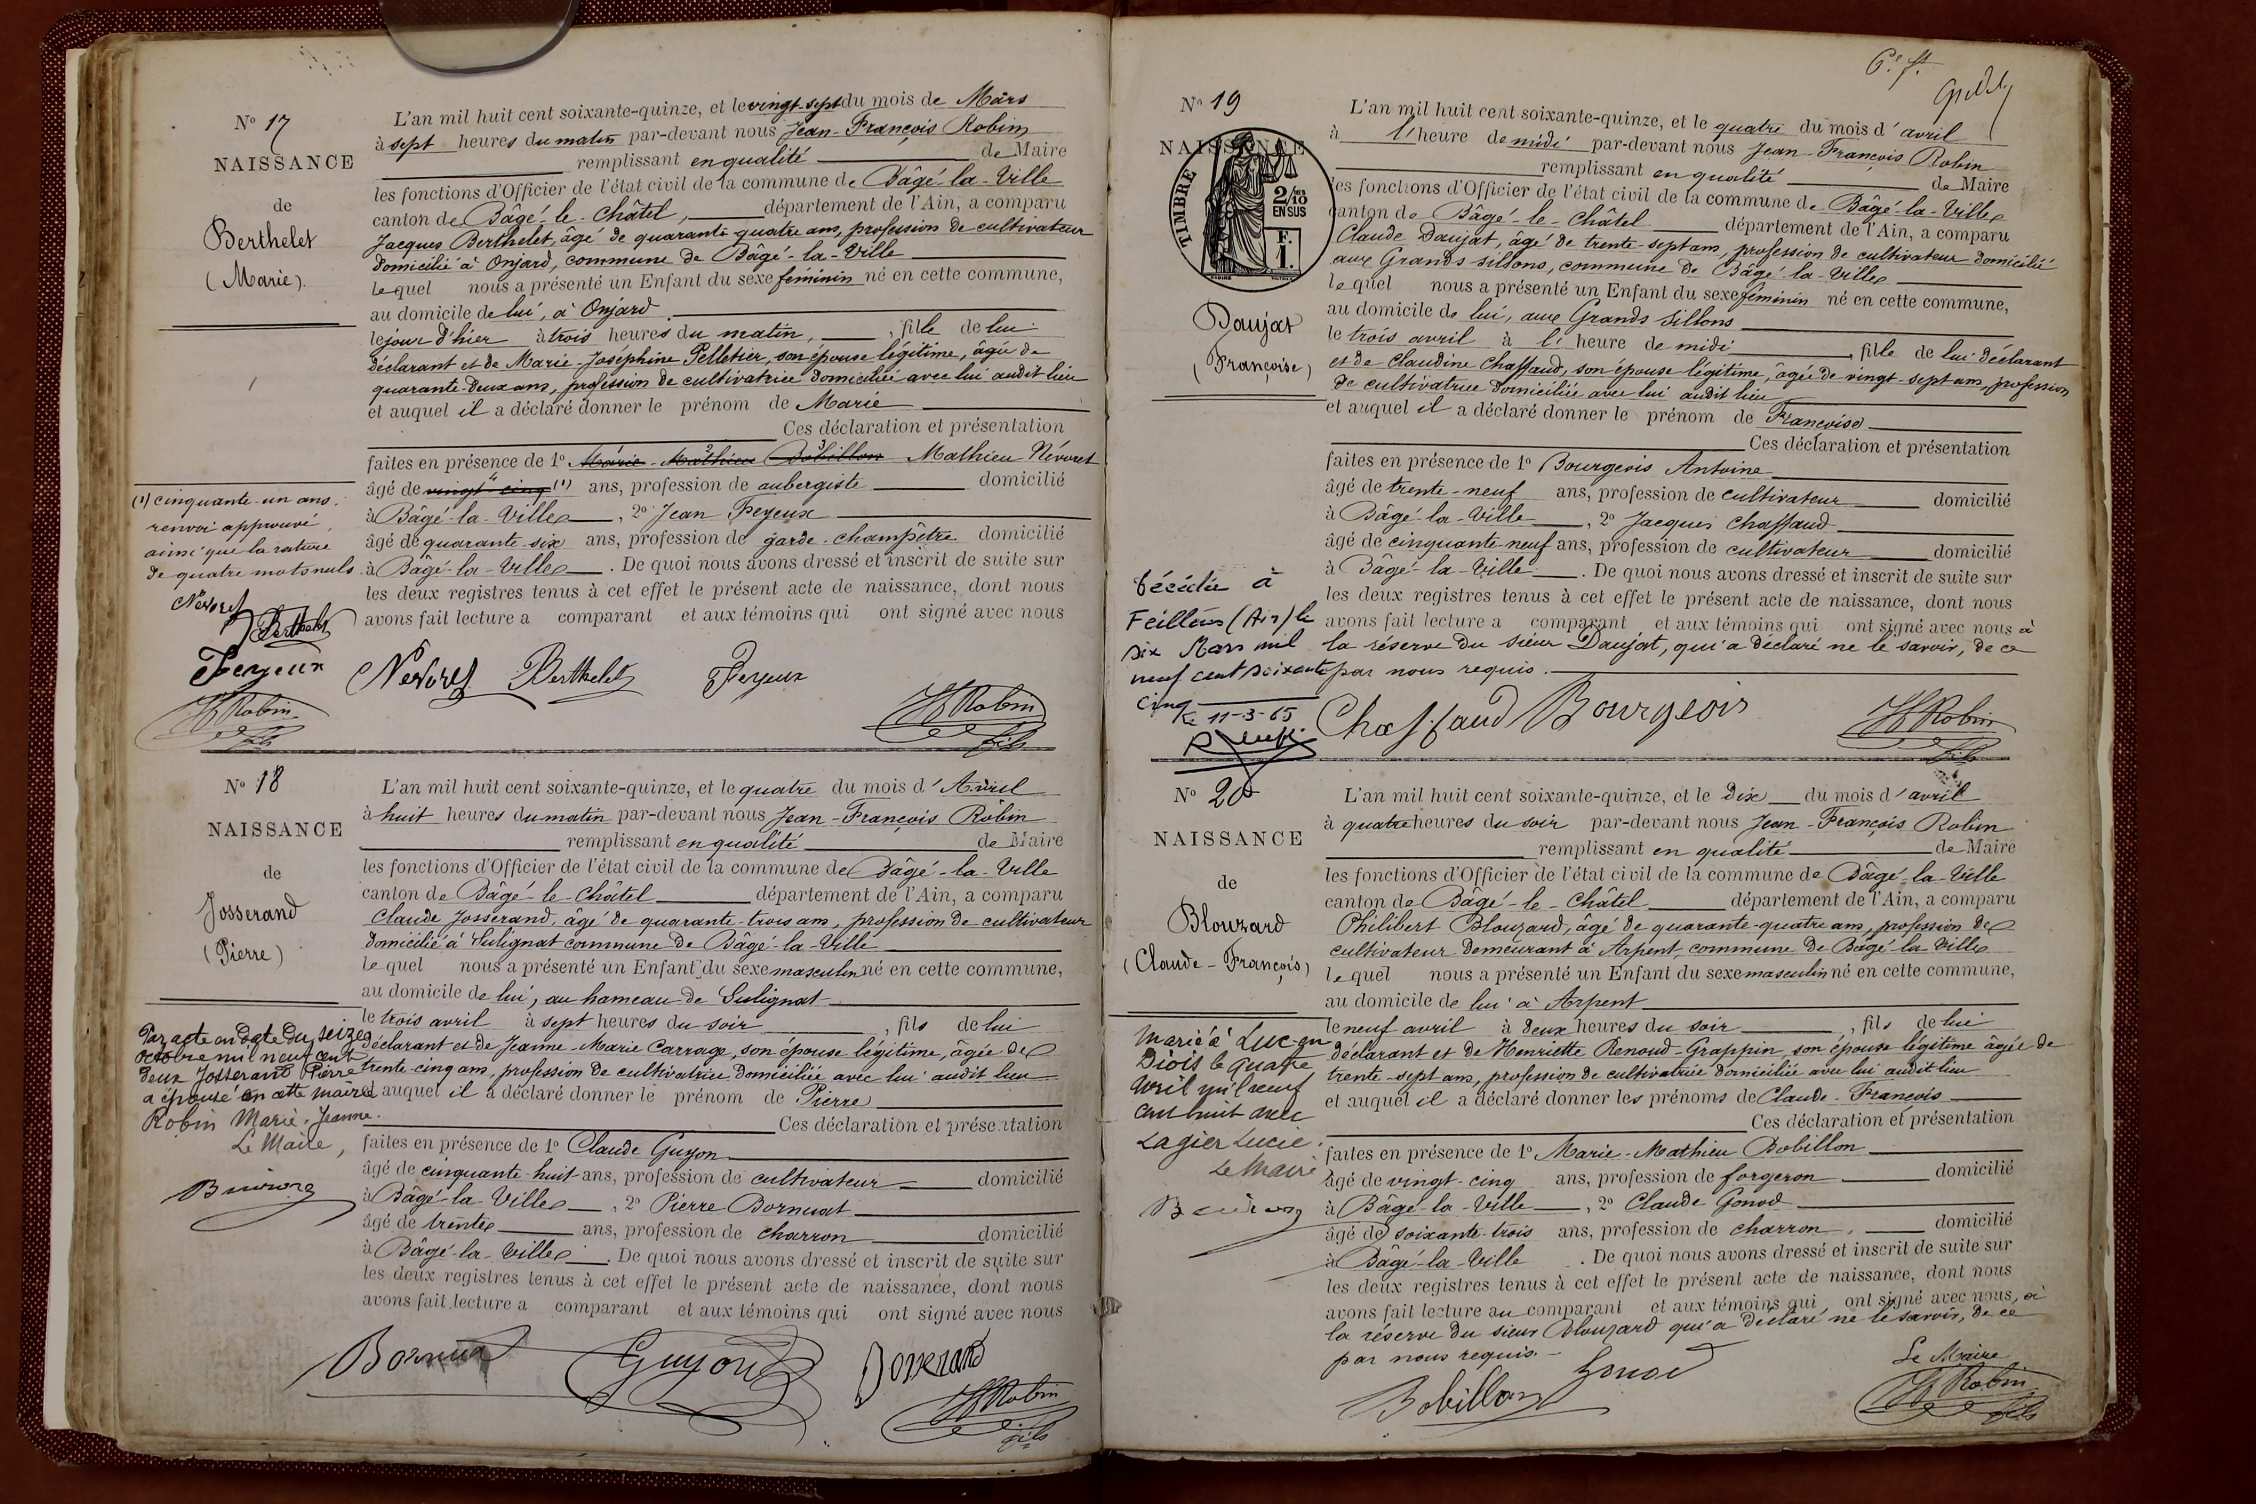 N° 17
NAISSANCE
de
Berthelet
(Marie).
L'an mil huit cent soixante-quinze, et le vingt-sept du mois de Mars
à sept heures du matin par-devant nous Jean-François Robin
remplissant en qualité de Maire
les fonctions d'Officier de l'état civil de la commune de Bâgé-la-Ville
canton de Bâgé-le-Châtel, département de l'Ain, a comparu
Jacques Berthelet, âgé de quarante-quatre ans, profession de cultivateur
domicilié à Onjard, commune de Bâgé-la-Ville
lequel nous a présenté un Enfant du sexe féminin né en cette commune,
au domicile de lui, à Onjard
le jour d'hier à trois heures du matin, , fille de lui
déclarant et de Marie-Joséphine Pelletier, son épouse légitime, âgée de
quarante-deux ans, profession de cultivatrice domiciliée avec lui audit lieu
et auquel il a déclaré donner le prénom de Marie
Ces déclaration et présentation
faites en présence de 1° Marie-Mathieu Bobillon Mathieu Névoret
âgé de vingt-cinq (1) ans, profession de aubergiste domicilié
à Bâgé-la-Ville, 2° Jean Feyeux
âgé de quarante-six ans, profession de garde-champêtre domicilié
à Bâgé-la-Ville. De quoi nous avons dressé et inscrit de suite sur
les deux registres tenus à cet effet le présent acte de naissance, dont nous
avons fait lecture a comparant et aux témoins qui ont signé avec nous
(1) cinquante-un ans.
renvoi approuvé,
ainsi que la rature
de quatre mots nuls.
Nevoret
Berthelet
Feyeux
Robin
fils
Nevoret Berthelet Feyeux
Robin
fils
N° 18
NAISSANCE
de
Josserand
(Pierre)
L'an mil huit cent soixante-quinze, et le quatre du mois d'Avril
à huit heures du matin par-devant nous Jean-François Robin
remplissant en qualité de Maire
les fonctions d'Officier de l'état civil de la commune de Bâgé-la-Ville
canton de Bâgé-le-Châtel département de l'Ain, a comparu
Claude Josserand, âgé de quarante-trois ans, profession de cultivateur
domicilié à Sulignat commune de Bâgé-la-Ville
lequel nous a présenté un Enfant du sexe masculin né en cette commune,
au domicile de lui, au hameau de Sulignat
le trois avril à sept heures du soir , fils de lui
déclarant et de Jeanne-Marie Carrage, son épouse légitime, âgée de
trente-cinq ans, profession de cultivatrice domiciliée avec lui audit lieu
et auquel il a déclaré donner le prénom de Pierre
Ces déclaration et présentation
faites en présence de 1° Claude Guyon
âgé de cinquante-huit ans, profession de cultivateur domicilié
à Bâgé-la-Ville, 2° Pierre Bornuat
âgé de trente ans, profession de charron domicilié
à Bâgé-la-Ville. De quoi nous avons dressé et inscrit de suite sur
les deux registres tenus à cet effet le présent acte de naissance, dont nous
avons fait lecture a comparant et aux témoins qui ont signé avec nous
Par acte en date du seize
octobre mil neuf cent
deux Josserand Pierre
a épousé en cette mairie
Robin Marie-Jeanne.
Le Maire,
Bornuat Guyon Josserand
Robin
fils
N° 19
NAISSANCE
TIMBRE
2/10
EN SUS
F.
1.
Daujat
(Françoise)
L'an mil huit cent soixante-quinze, et le quatre du mois d'avril
à l' heure de midi par-devant nous Jean-François Robin
remplissant en qualité de Maire
les fonctions d'Officier de l'état civil de la commune de Bâgé-la-Ville
canton de Bâgé-le-Châtel département de l'Ain, a comparu
Claude Daujat, âgé de trente-sept ans, profession de cultivateur domicilié
aux Grands Sillons, commune de Bâgé-la-Ville
lequel nous a présenté un Enfant du sexe féminin né en cette commune,
au domicile de lui, aux Grands Sillons
le trois avril à l' heure de midi , fille de lui déclarant
et de Claudine Chaffaud, son épouse légitime, âgée de vingt-sept ans, profession
de cultivatrice domiciliée avec lui audit lieu
et auquel il a déclaré donner le prénom de Françoise
Ces déclaration et présentation
faites en présence de 1° Bourgeois Antoine
âgé de trente-neuf ans, profession de cultivateur domicilié
à Bâgé-la-Ville, 2° Jacques Chaffaud
âgé de cinquante-neuf ans, profession de cultivateur domicilié
à Bâgé-la-Ville. De quoi nous avons dressé et inscrit de suite sur
les deux registres tenus à cet effet le présent acte de naissance, dont nous
avons fait lecture a comparant et aux témoins qui ont signé avec nous à
la réserve du sieur Daujat, qui a déclaré ne le savoir, de ce
par nous requis.
Décédée à
Feillens (Ain) le
dix Mars mil
neuf cent soixante
cinq
Le 11-3-65
Chaffaud Bourgeois
Robin
fils
N° 20
NAISSANCE
de
Blouzard
(Claude-François)
L'an mil huit cent soixante-quinze, et le dix du mois d'avril
à quatre heures du soir par-devant nous Jean-François Robin
remplissant en qualité de Maire
les fonctions d'Officier de l'état civil de la commune de Bâgé-la-Ville
canton de Bâgé-le-Châtel département de l'Ain, a comparu
Philibert Blouzard, âgé de quarante-quatre ans, profession de
cultivateur demeurant à Arpent, commune de Bâgé-la-Ville
lequel nous a présenté un Enfant du sexe masculin né en cette commune,
au domicile de lui à Arpent
le neuf avril à deux heures du soir , fils de lui
déclarant et de Henriette Renoud-Grappin, son épouse légitime âgée de
trente-sept ans, profession de cultivatrice domiciliée avec lui audit lieu
et auquel il a déclaré donner les prénoms de Claude-François
Ces déclaration et présentation
faites en présence de 1° Marie-Mathieu Bobillon
âgé de vingt-cinq ans, profession de forgeron domicilié
à Bâgé-la-Ville, 2° Claude Gonod
âgé de soixante-trois ans, profession de charron. domicilié
à Bâgé-la-Ville. De quoi nous avons dressé et inscrit de suite sur
les deux registres tenus à cet effet le présent acte de naissance, dont nous
avons fait lecture au comparant et aux témoins qui ont signé avec nous, à
la réserve du sieur Blouzard qui a déclaré ne le savoir, de ce
par nous requis.
Marié à Luc-en
Diois le quatre
avril mil neuf
cent huit avec
Lagier Lucie.
Le Maire
Bobillon Gonod
Le Maire
Robin
fils